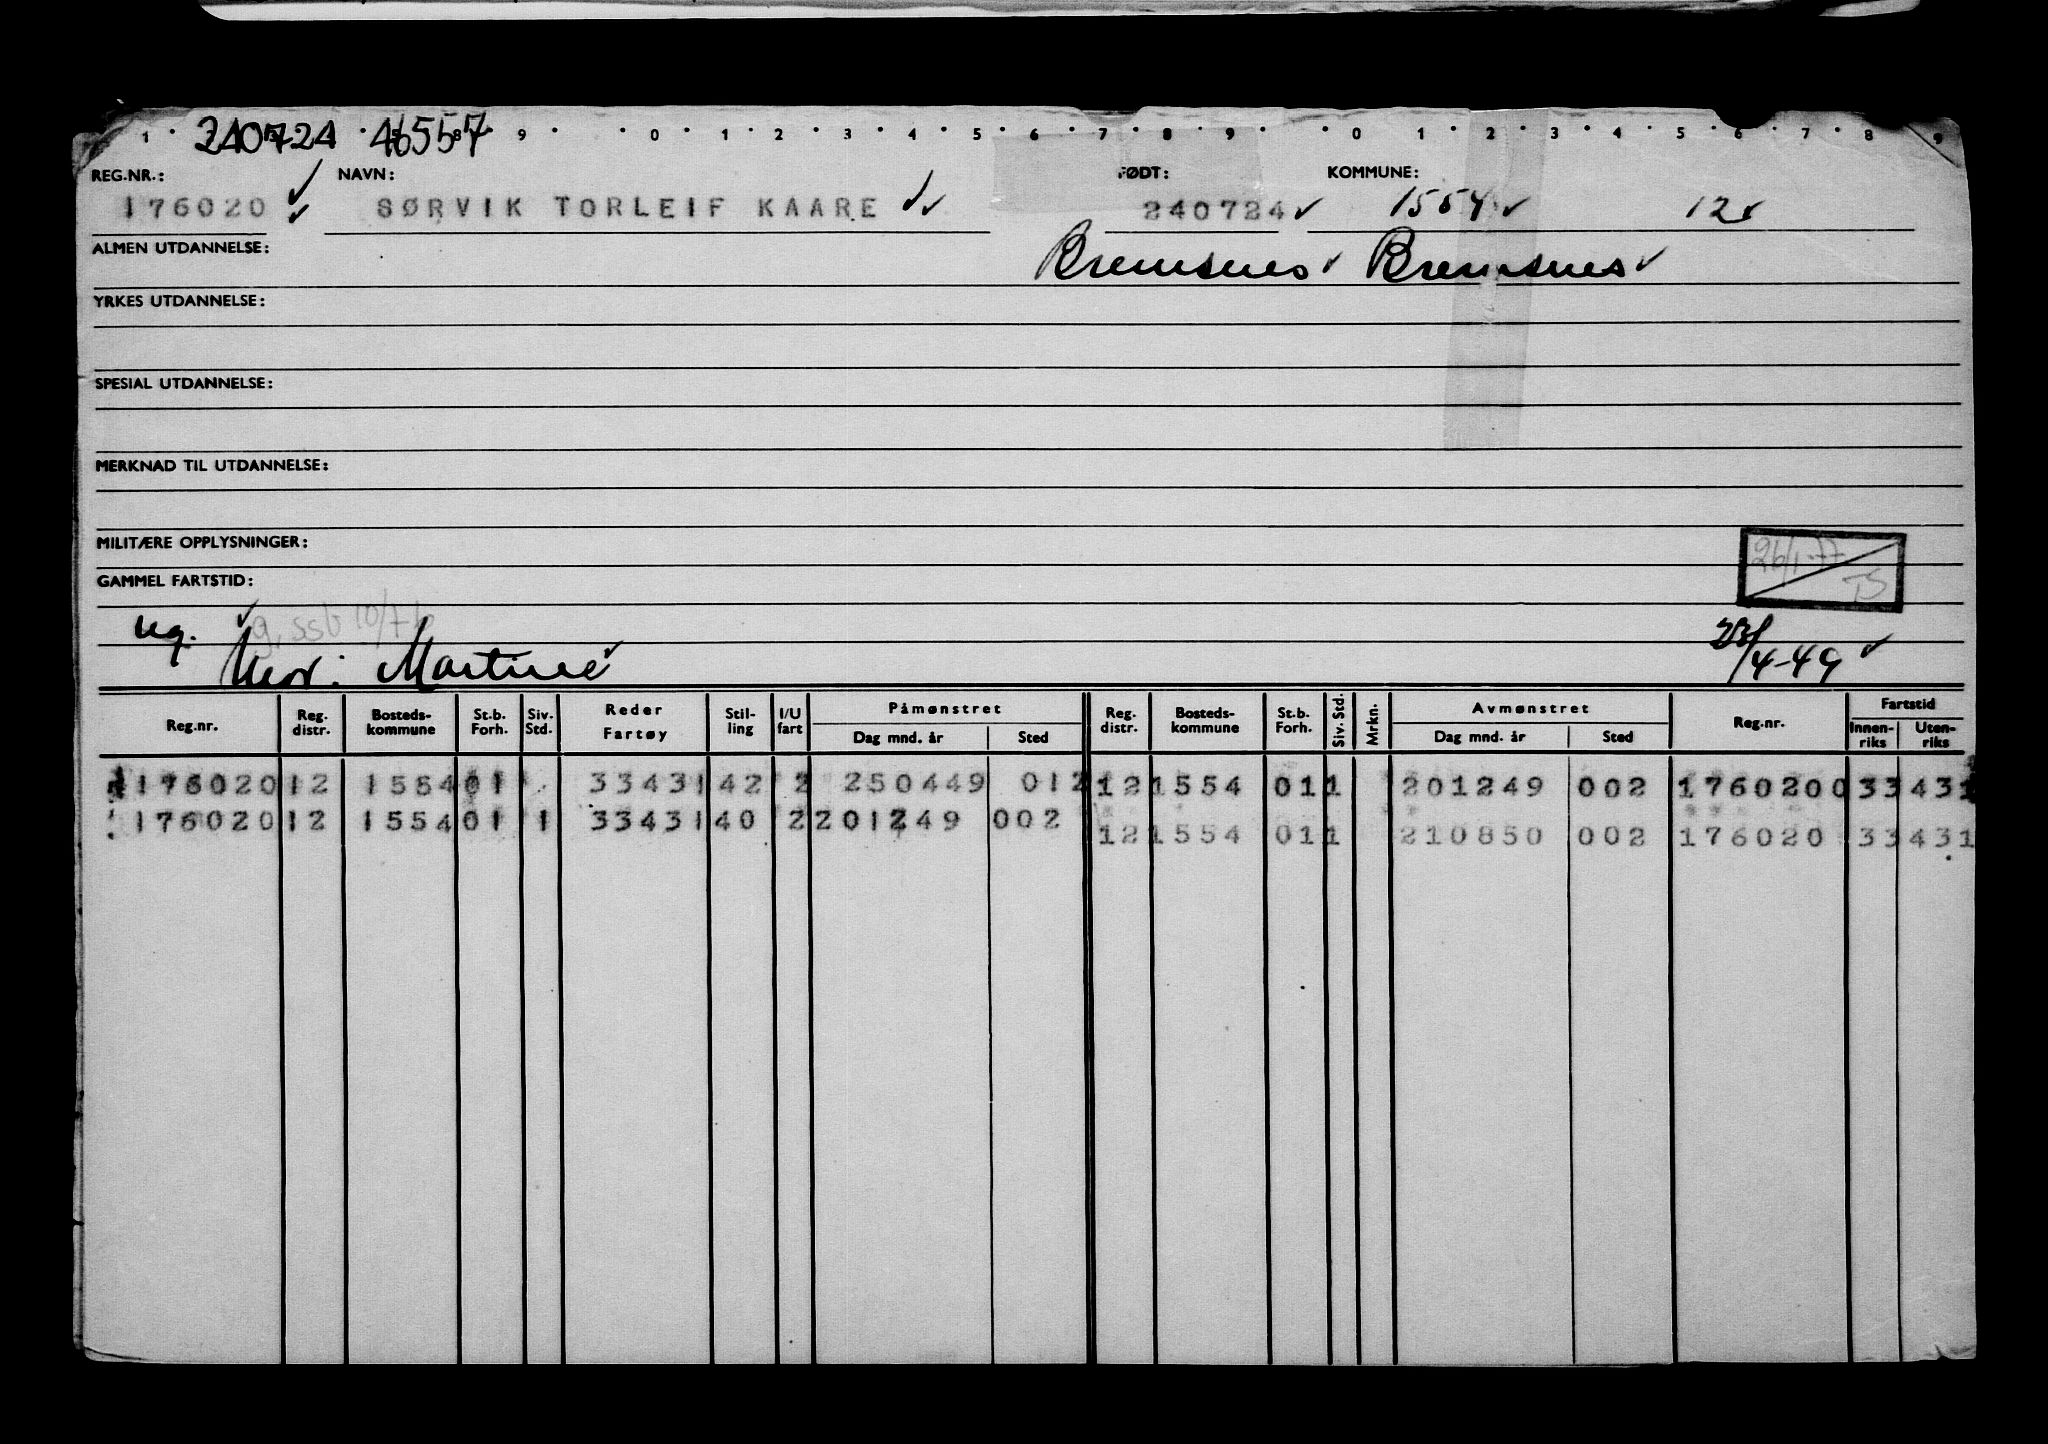 1 9 0 1 2 3 4 5 6 7 8 9 0 1 2 3 4 5 6 7 8 9
240724 46557
REG.NR.: NAVN: FØDT: KOMMUNE:
176020 SØRVIK TORLEIF KAARE 240724 1554 12
ALMEN UTDANNELSE: Bremsnes Bremsnes
YRKES UTDANNELSE:
SPESIAL UTDANNELSE:
MERKNAD TIL UTDANNELSE:
MILITÆRE OPPLYSNINGER:
26/1-77
TS
GAMMEL FARTSTID:
ug.
Mor: Martine 23/4-49
Reg.nr. Reg. distr. Bosteds- kommune St.b. Forh. Siv. Std. Reder Fartøy Stil- ling I/U fart Påmønstret Dag mnd. år Sted Reg. distr. Bosteds- kommune St.b. Forh. Siv. Std. Mrkn. Avmønstret Dag mnd. år Sted Reg.nr. Fartstid Innen- riks Uten- riks
176020 12 1554 01 33431 42 2 250449 012 12 1554 01 1 201249 002 1760200 33 431
176020 12 1554 01 1 33431 40 2 201249 002 12 1554 01 1 210850 002 176020 33 431